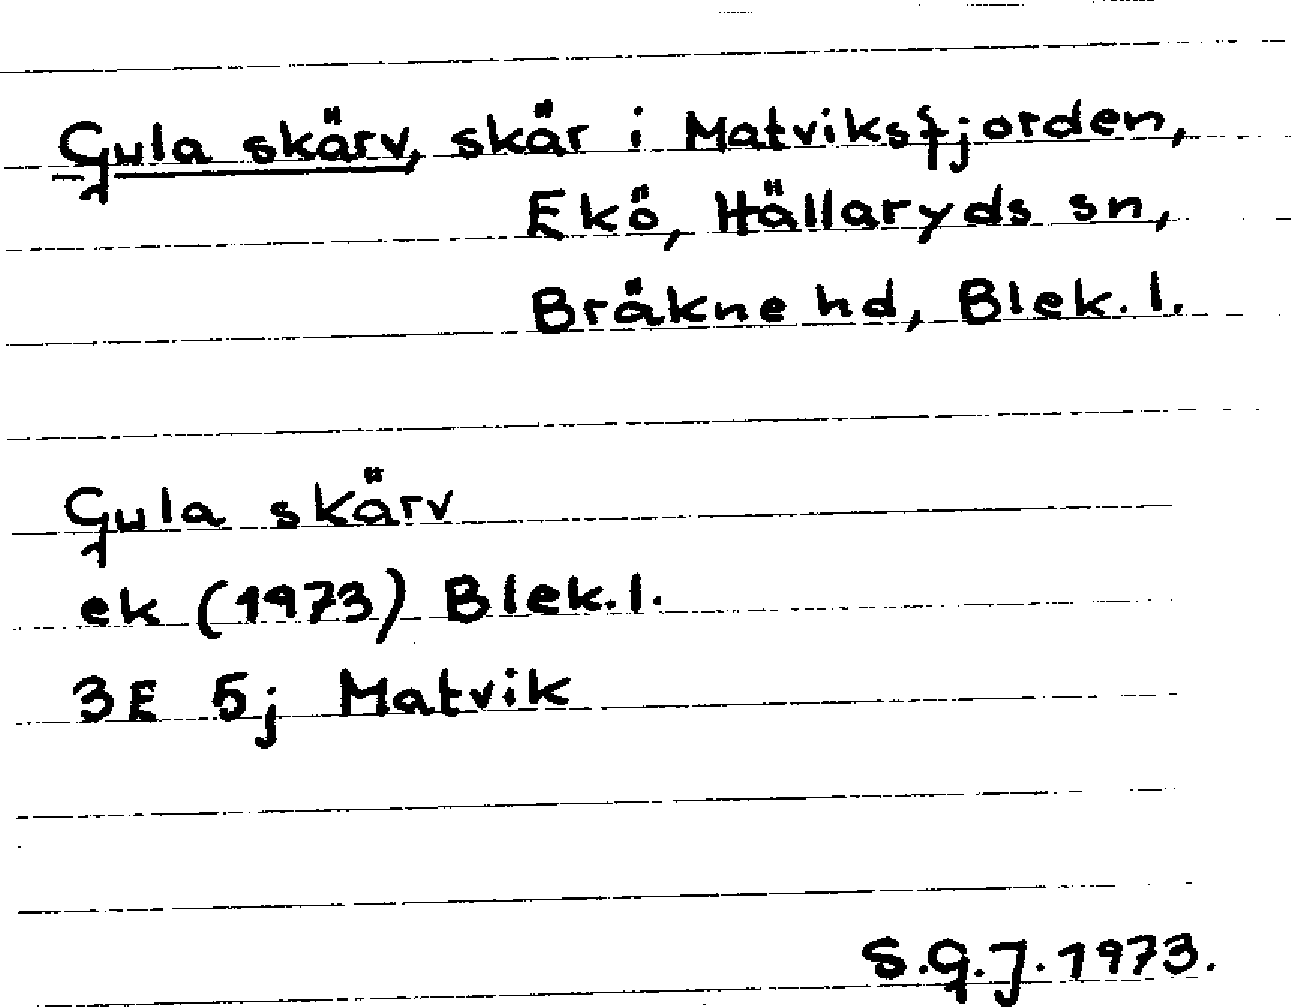 Gula skärv, skär i Matviksfjorden,
Ekö, Hällaryds sn,
Bräkne hd, Blek. l.
Gula skärv
ek (1973) Blek. l.
3E 5j Matvik
S.G.J. 1973.